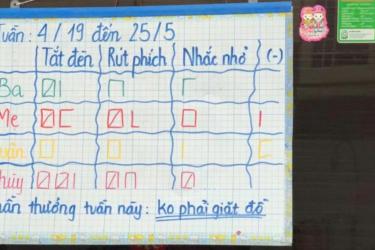 Tuần: 4/19 đến 25/5
Tắt đèn Rút phích Nhắc nhở (-)
Ba
Mẹ
Thúy
Phần thưởng tuần này: ko phải giặt đồ